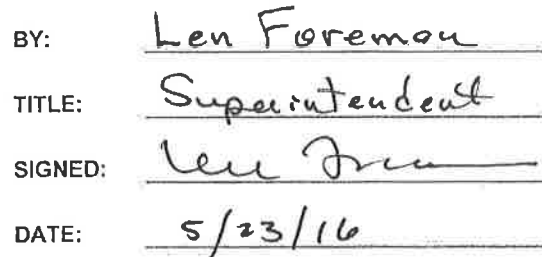 BY: Len Foreman
TITLE: Superintendent
SIGNED: Len
DATE: 5/23/16